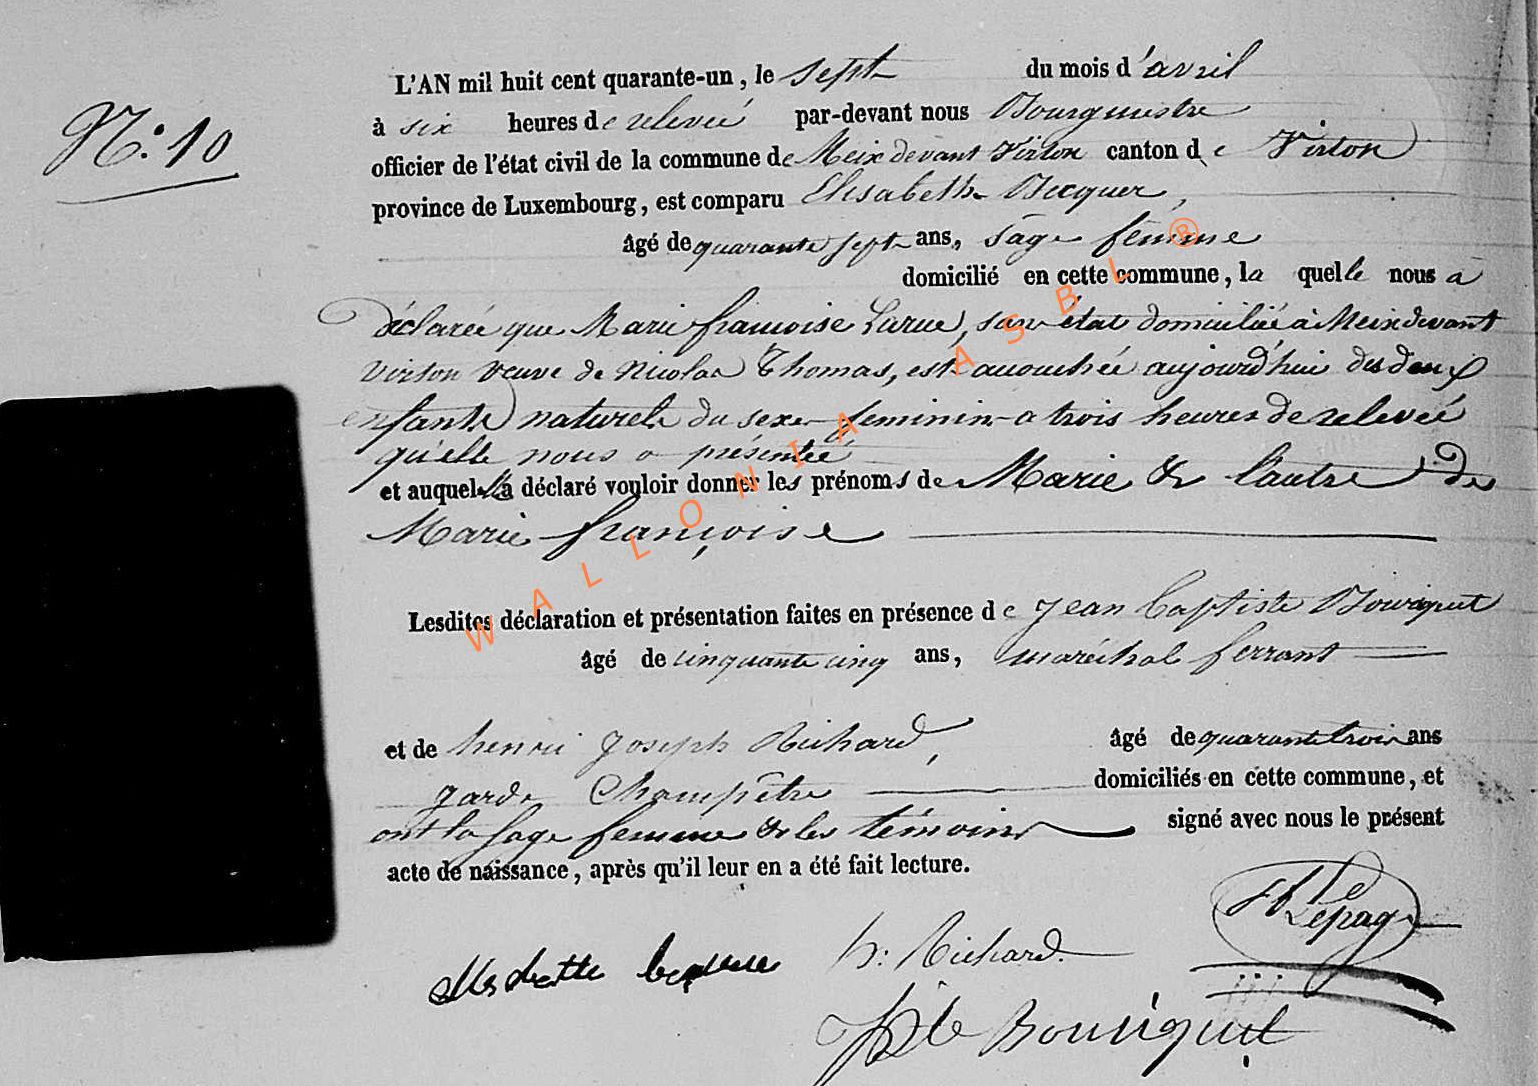 N.° 10
L'AN mil huit cent quarante-un, le sept du mois d'avril
à six heures de relevée par-devant nous Bourgmestre
officier de l'état civil de la commune de Meix devant Virton canton de Virton
province de Luxembourg, est comparu Elisabeth Becquer,
âgé de quarante sept ans, sage femme
domicilié en cette commune, la quelle nous à
déclarée que Marie françoise Larue, san état domiciliée à Meix devant
Virton veuve de Nicolas Thomas, est accouchée aujourd'hui des deux
enfants naturels du sexe feminin a trois heures de relevée
qu'elle nous a présentée
et auquels a déclaré vouloir donner les prénoms de Marie & l'autre de
Marie françoise
Lesdites déclaration et présentation faites en présence de Jean Baptiste Bouriquet
âgé de cinquante cinq ans, maréchal ferrant
et de henri Joseph Richard, âgé de quarante trois ans
garde Champêtre domiciliés en cette commune, et
ont la sage femme & les témoins signé avec nous le présent
acte de naissance, après qu'il leur en a été fait lecture.
Lepage
h: Richard
Bte Bouriquet
WALLONIA ASBL ®